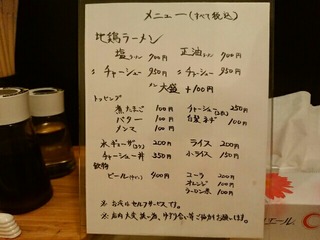 メニュー(すべて税込)
地鶏ラーメン
塩ラーメン 900円 正油ラーメン 900円
〃 チャーシュー 950円 〃 チャーシュー 950円
メン 大盛 +100円
トッピング
煮たまご 100円 チャーシュー 250円
バター 100円 白髪ネギ 100円
メンマ 100円
水ギョーザ 200円 ライス 200円
チャーシュー丼 350円 小ライス 150円
飲物
ビール 500円 コーラ 200円
オレンジ 100円
ウーロン茶 100円
※ お水はセルフサービスです。
※ 店内大変狭い為、ゆずり合い等ご協力をお願いします。
エール!